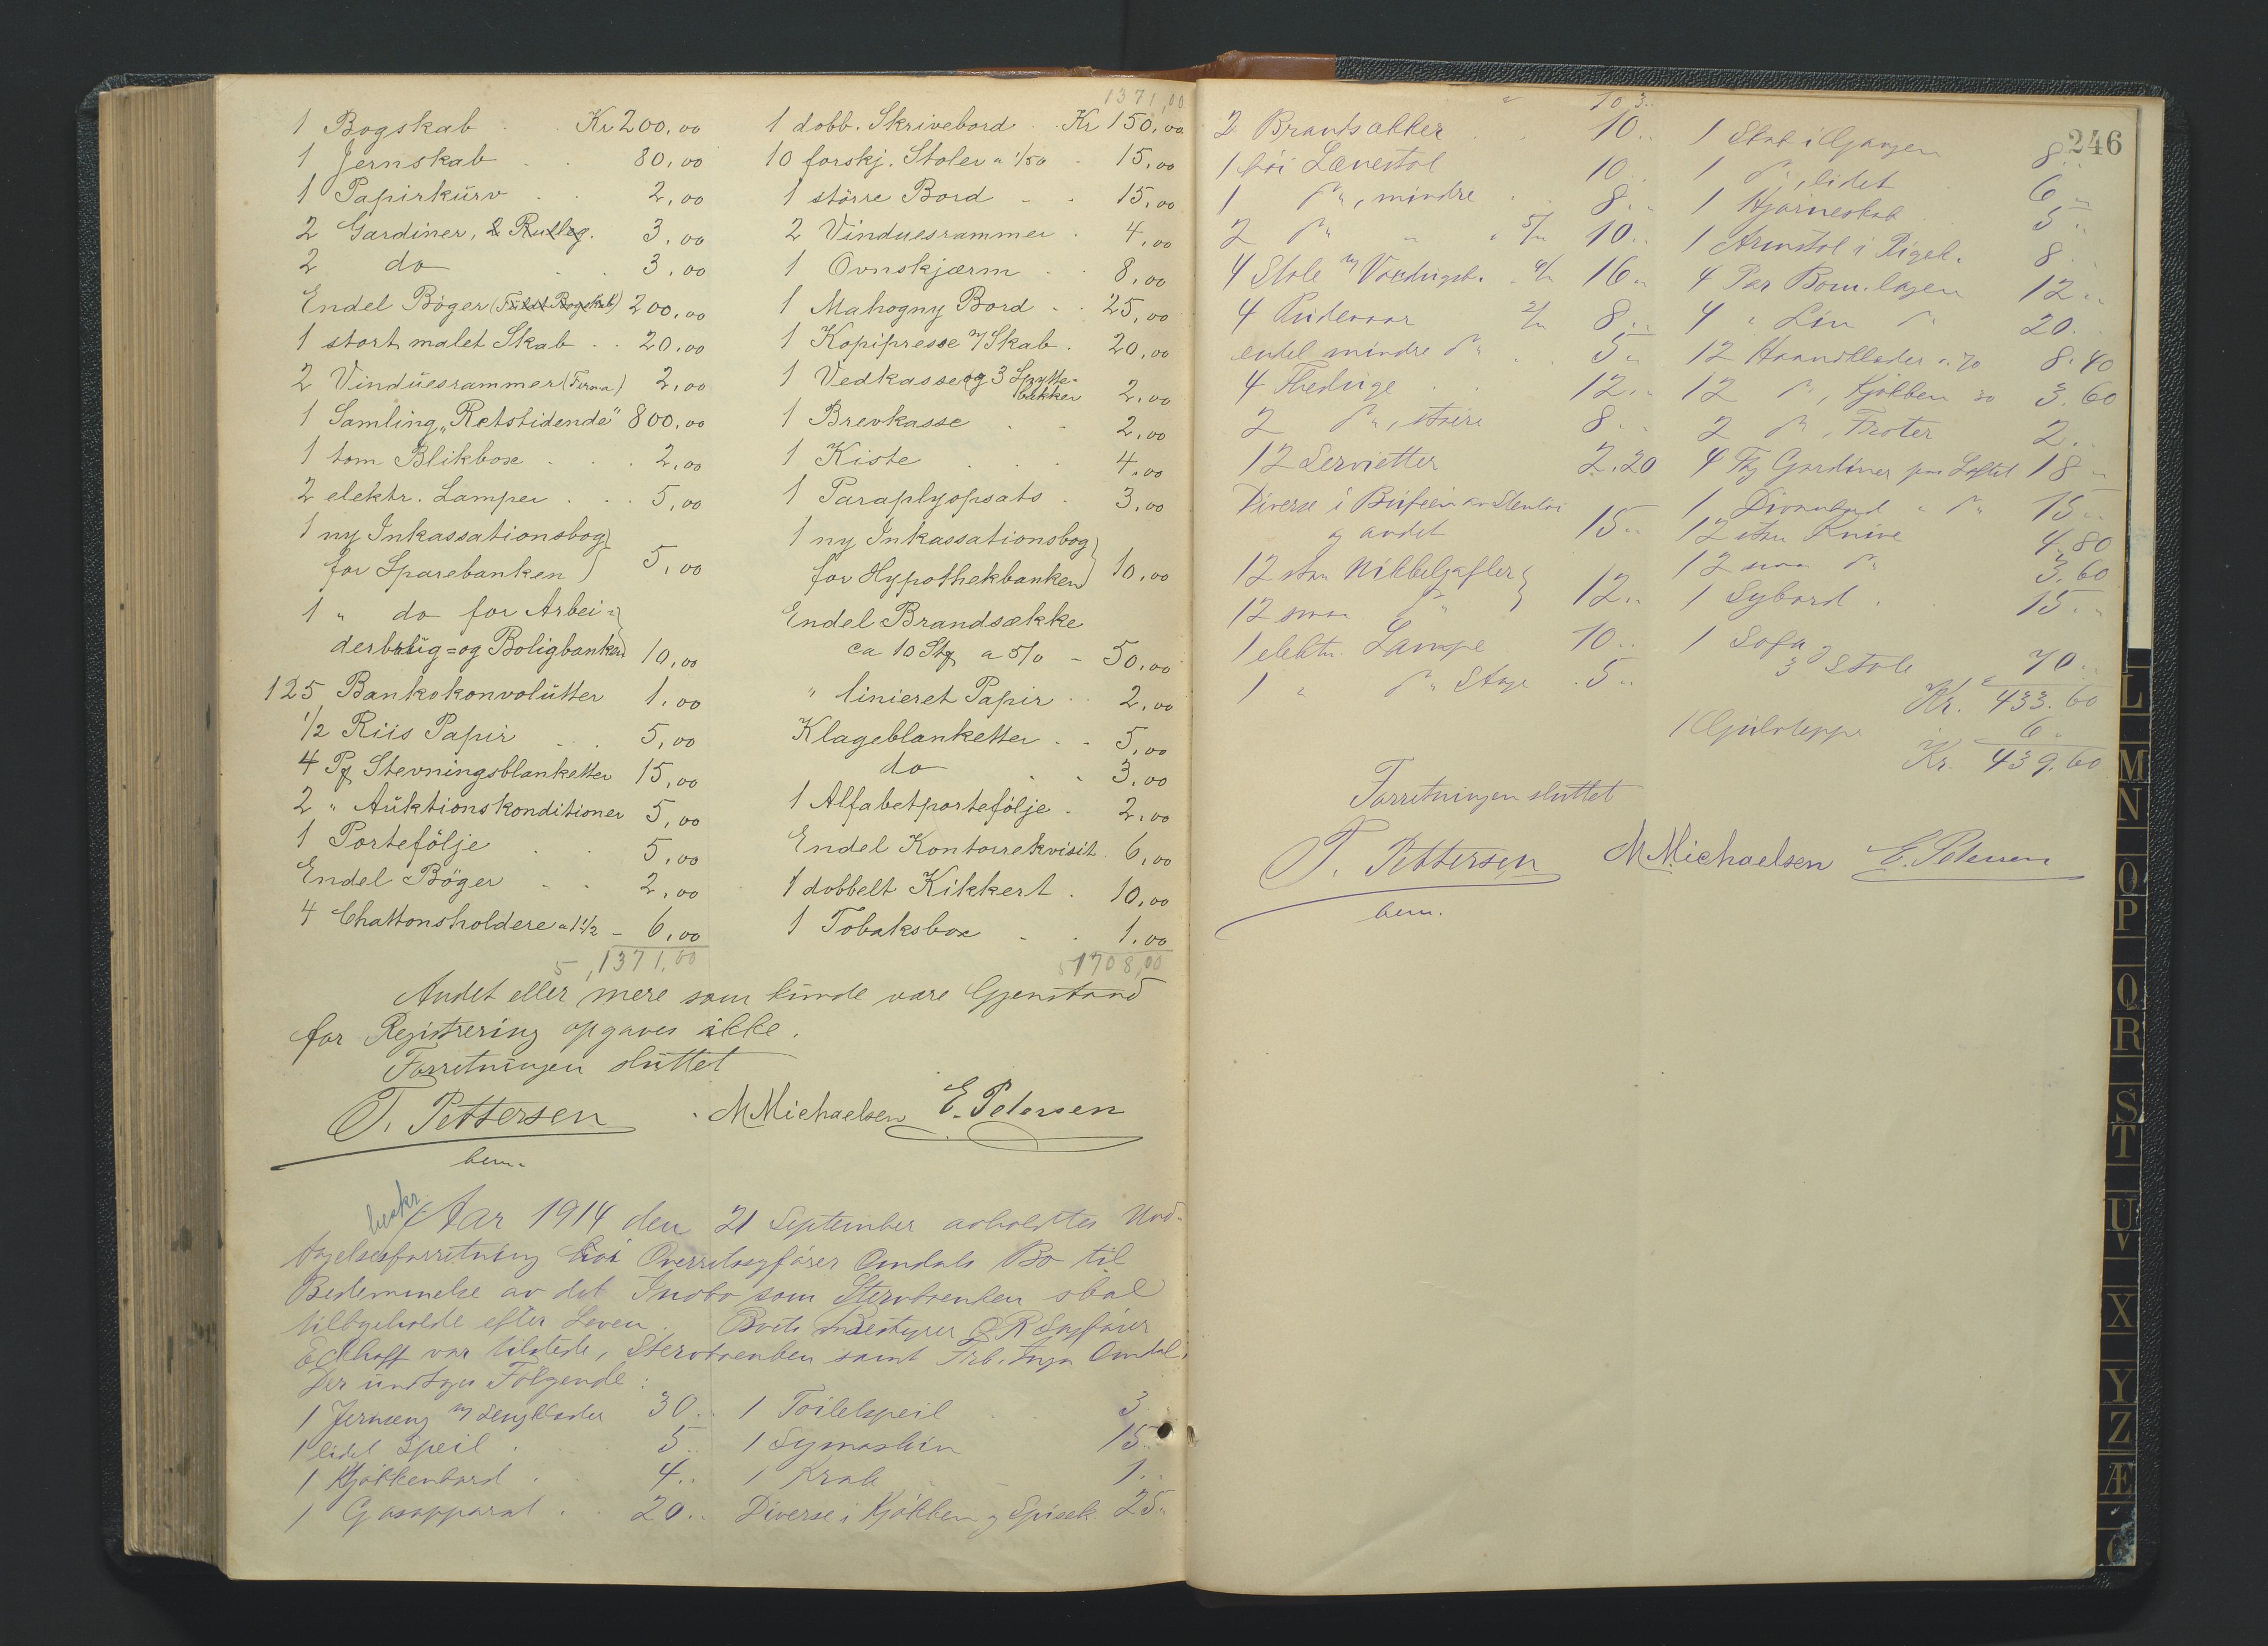 1371,00
1 Bogskab Kr 200,00
1 Jernskab 80,00
1 Papirkürv 2,00
2 Gardiner, 2 Rulleg. 3,00
2 do 3,00
Endel Böger 200,00
1 stort malet Skab 20,00
2 Vindüesrammer (Firma) 2,00
1 Samling „Retstidende" 800,00
1 tom Blikboxe 2,00
2 elektr. Lamper 5,00
1 ny Inkassationsbog
for Sparebanken) 5,00
1 " do for Arbei=
derbrüg= og Boligbanken 10,00
125 Bankokonvolütter 1,00
1/2 Riis Papir 5,00
4 Pk Stevningsblanketter 15,00
2 " Auktionskonditioner 5,00
1 Portefölje 5,00
Endel Böger 2,00
4 Chattonsholdere a 1 1/2 - 6,00
1371,00
1 dobb. Skrivebord Kr 150,00
10 forskj. Stoler a 1/50 - 15,00
1 större Bord 15,00
2 Vinduesrammer 4,00
1 Ovnskjærm 8,00
1 Mahogny Bord 25,00
1 Kopipresse m/Skab 20,00
1 Vedkasse og 3 Spytte-
bakker 2,00
1 Brevkasse 2,00
1 Kiste 4,00
1 Paraplyopsats 3,00
1 ny Inkassationsbog
for Hypothekbanken 10,00
Endel Brandsække
ca 10 Stk a 5/0 - 50,00
" linieret Papir 2,00
Klageblanketter 5,00
do 3,00
1 Alfabetportefölje 2,00
Endel Kontorrekvisit. 6,00
1 dobbelt Kikkert 10,00
1 Tobaksboxe 1,00
1708,00
Andet eller mere som kunde være Gjenstand
for Registrering opgaves ikke.
Forretningen slüttet
T. Pettersen M Michaelsen E. Petersen
bem.
Aar 1914 den 21 September avholdtes Und-
tagelsesforretning hos Overretssagfører Omdals Bo til
Bedømmelse av det Indbo som Stervboenken skal
tilbageholde efter Loven. Boets Medestyrer O R Sagfører
Eckhoff var tilstede, Stervboenken samt Frk. Inga Omdal.
Der undtages Følgende:
1 Jernseng m Sengklæder 30 1 Toiletspeil 3
1 lidet Speil 5 1 Symaskin 15
1 Kjøkkenbord 4 1 Krak 1
1 Gasapparat 20 Diverse i Kjøkken og Spisek. 25
246
2 Brandsækker 10
1 høi Lænestol 10
1 do, mindre 8
2 do 5/" 10
4 Stole m Voxdugst. 4/" 16
4 Pudevaar 2/" 8
endel mindre do 5
4 Theduge 12
2 do, større 8
12 Servietter 2.20
Diverse i Büfeen av Stentøi
og andet 15
12 store Nikkelgafler
12 smaa do 12
1 elektr. Lampe 10
1 " do Stage 5
1 Skab i Gangen 8
1 do, lidet 6
1 Hjørneskab 5
1 Armstol i Pigek. 8
4 Par Bom. lagen 12
4 " Lin do 20
12 Haandklæder a 70 8.40
12 do, Kjøkken 30 3.60
2 do, Froter 2
4 Fag Gardiner paa Loftet 18
1 Divanbord " do 15
12 store Knive 4.80
12 smaa do 3.60
1 Sybord 15
1 Sofa
3 Stole 70
Kr. 433.60
1 Gulvteppe 6
Kr. 439.60
Forretningen sluttet
T. Pettersen M Michaelsen E. Petersen
bem.
L
M
N
O
P
Q
R
S
T
U
V
X
Y
Z
Æ